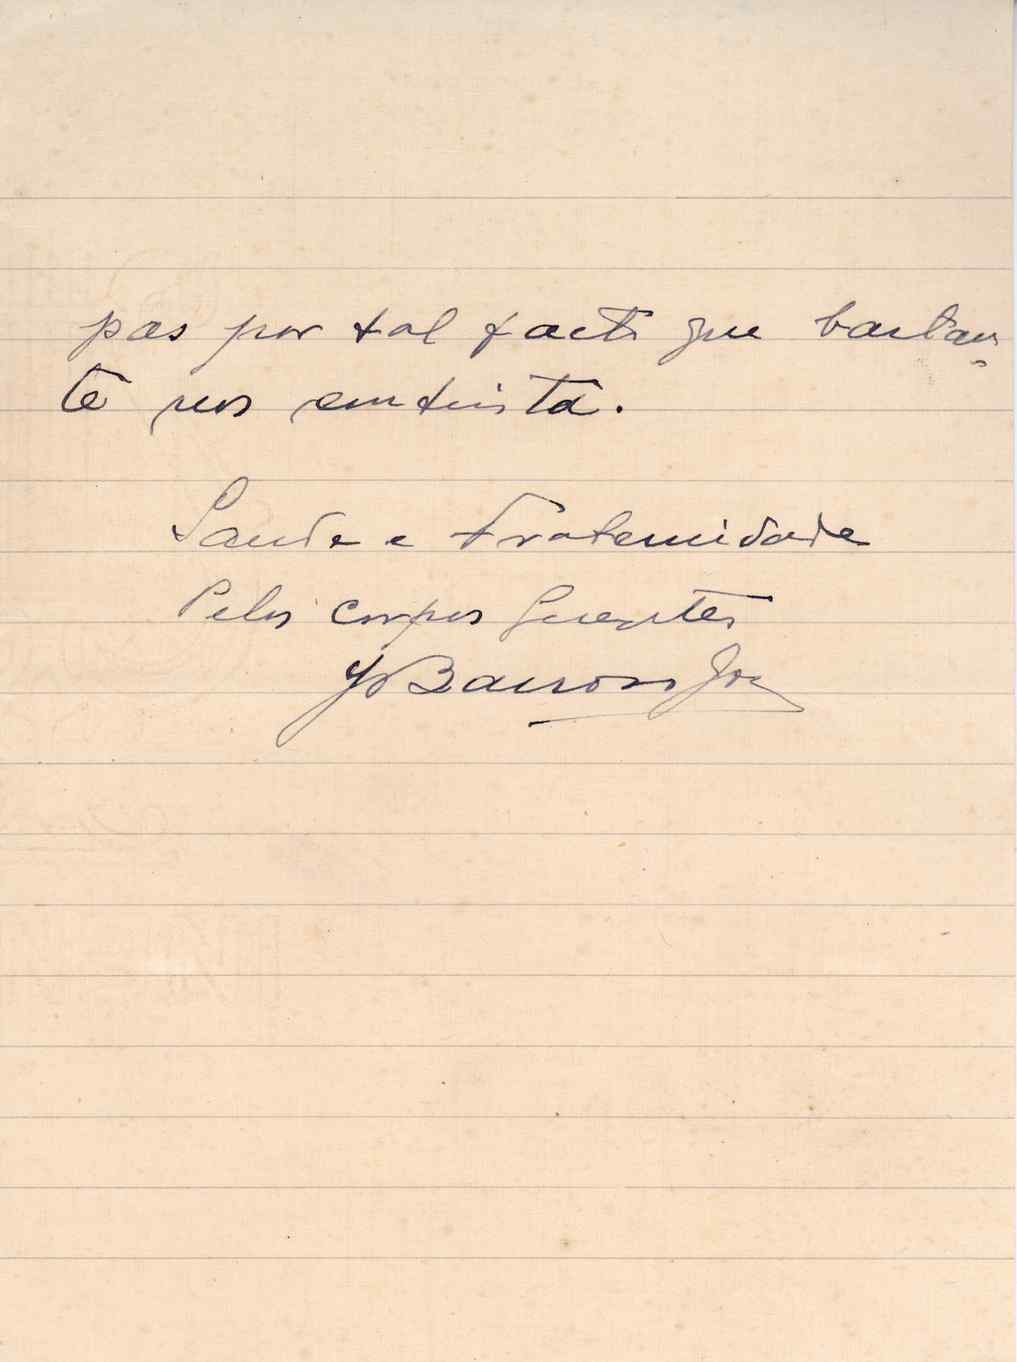 pas por tal facto que bastan-
te nos contrista.
Saude e Fraternidade
Pelos corpos Gerentes
Barros